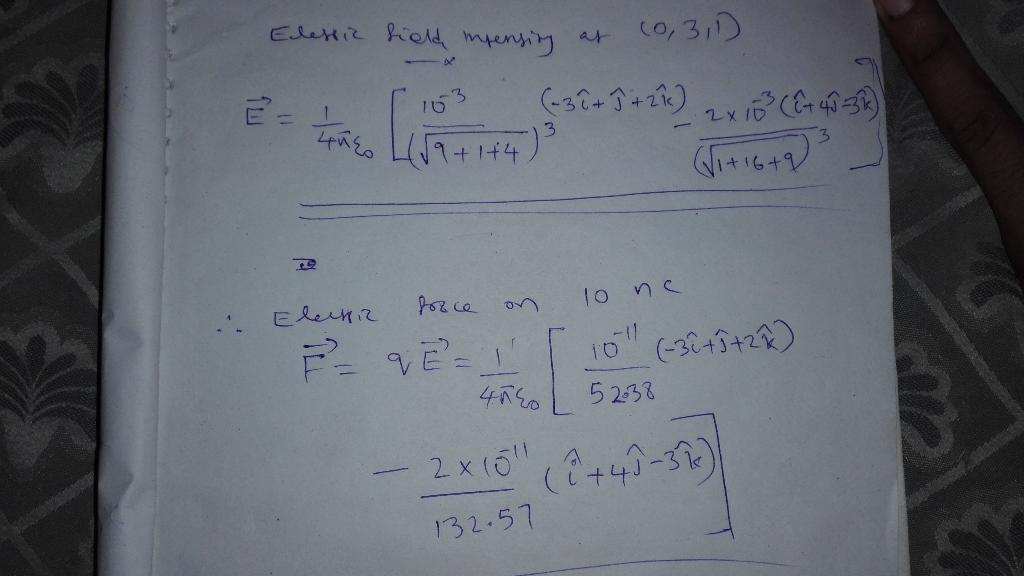 Electric field intensity at (0,3,1)
E⃗ = 1/4πε₀ [ 10⁻³/(√9+1+4)³ (-3î+ĵ+2k̂) - 2×10⁻³(î+4ĵ-3k̂)/(√1+16+9)³ ]
∴ Electric force on 10 nc
F⃗ = qE⃗ = 1/4πε₀ [ 10⁻¹¹/52.38 (-3î+ĵ+2k̂)
- 2×10⁻¹¹/132.57 (î+4ĵ-3k̂) ]